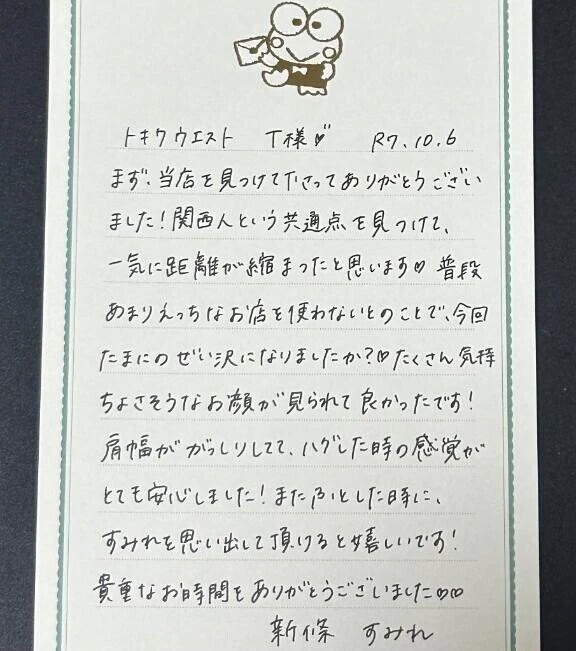 トキワウエスト T様♡ R7.10.6
まず、当店を見つけて下さってありがとうござい
ました!関西人という共通点を見つけて、
一気に距離が縮まったと思います♡ 普段
あまりえっちなお店を使わないとのことで、今回
たまにのぜい沢になりましたか?♡たくさん気持
ちよさそうなお顔が見られて良かったです!
肩幅ががっしりしてて、ハグした時の感覚が
とても安心しました!またふとした時に、
すみれを思い出して頂けると嬉しいです!
貴重なお時間をありがとうございました♡♡
新條 すみれ